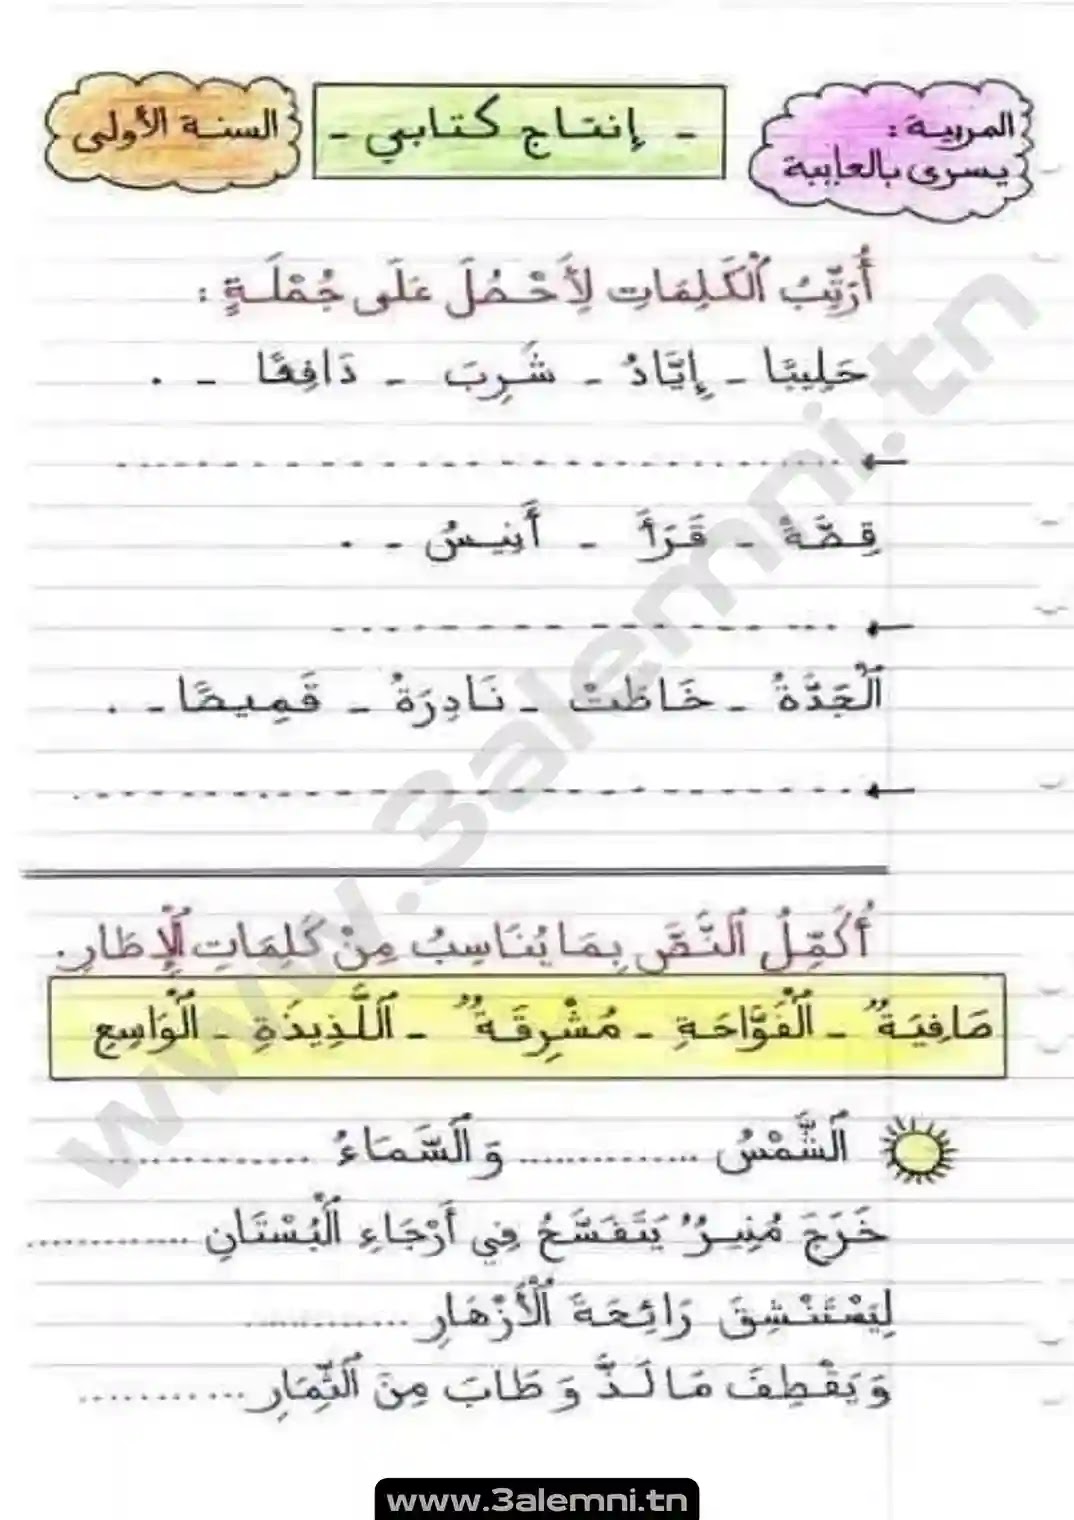 المربية :
يسرى بالعايبة
- إنتاج كتابي -
السنة الأولى
أُرَتِّبُ ٱلْكَلِمَاتِ لِأَحْصُلَ عَلَى جُمْلَةٍ :
حَلِيبًا - إِيَّادُ - شَرِبَ - دَافِئًا - .
قِصَّةً - قَرَأَ - أَنِيسُ - .
ٱلْجَدَّةُ - خَاطَتْ - نَادِرَةُ - قَمِيصًا - .
أُكَمِّلُ ٱلنَّصَّ بِمَا يُنَاسِبُ مِنْ كَلِمَاتِ ٱلْإِطَارِ.
صَافِيَةٌ - ٱلْفَوَّاحَةِ - مُشْرِقَةٌ - ٱللَّذِيذَةِ - ٱلْوَاسِعِ
ٱلشَّمْسُ .............. وَٱلسَّمَاءُ ..............
خَرَجَ مُنِيرٌ يَتَفَسَّحُ فِي أَرْجَاءِ ٱلْبُسْتَانِ ..............
لِيَسْتَنْشِقَ رَائِحَةَ ٱلْأَزْهَارِ ..............
وَيَقْطِفَ مَا لَذَّ وَ طَابَ مِنَ ٱلثِّمَارِ ..............
www.3alemni.tn
www.3alemni.tn